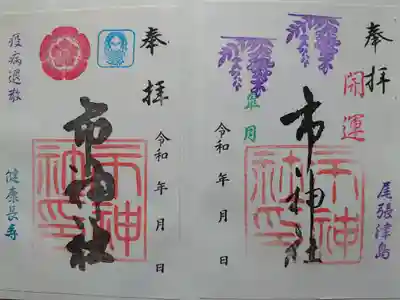 奉拝
開運
市神社
皐月
令和 年 月 日
尾張津島
奉拝
市神社
令和 年 月 日
疫病退散
健康長寿